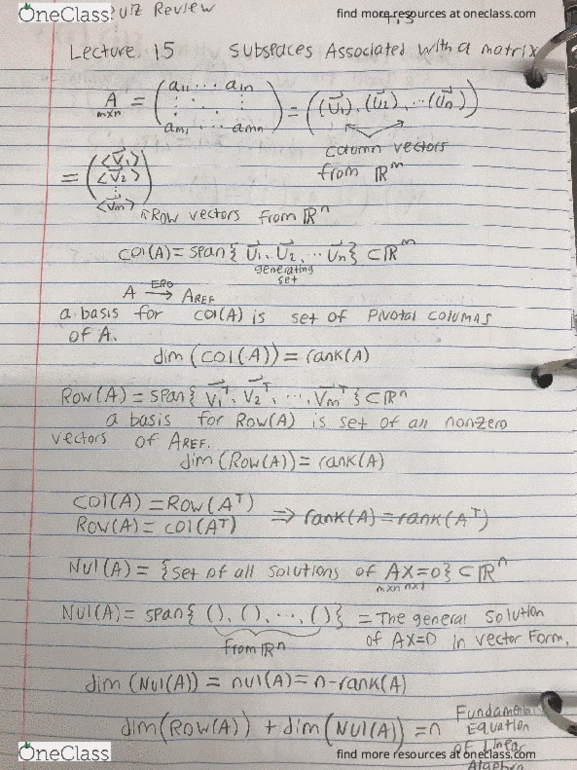 OneClass
Quiz Review
find more resources at oneclass.com
Lecture 15 Subspaces Associated with a matrix
A = ( a11 ... a1n ) = ((U⃗1), (U⃗2), ... (U⃗n))
mxn
am1 ... amn
column vectors
from ℝ^m
= ( <V⃗1> <V⃗2> ⋮ <V⃗m> )
↖ Row vectors from ℝ^n
Col(A) = span{ U⃗1, U⃗2, ... U⃗n} ⊂ ℝ^m
generating
set
A →ERO AREF
a basis for col(A) is set of Pivotal columns
of A.
dim (col(A)) = rank(A)
Row(A) = span{ V⃗1^T, V⃗2^T, ..., V⃗m^T } ⊂ ℝ^n
a basis for Row(A) is set of all nonzero
vectors of AREF.
dim(Row(A)) = rank(A)
Col(A) = Row(A^T)
Row(A) = col(A^T) ⇒ rank(A) = rank(A^T)
Nul(A) = {set of all solutions of AX=0} ⊂ ℝ^n
mxn nx1
Nul(A) = span{ (), (), ..., () } = The general solution
of AX=0 in vector Form.
from ℝ^n
dim (Nul(A)) = nul(A) = n-rank(A)
dim(Row(A)) + dim(Nul(A)) = n
Fundamental
Equation
of Linear
Algebra
OneClass
find more resources at oneclass.com